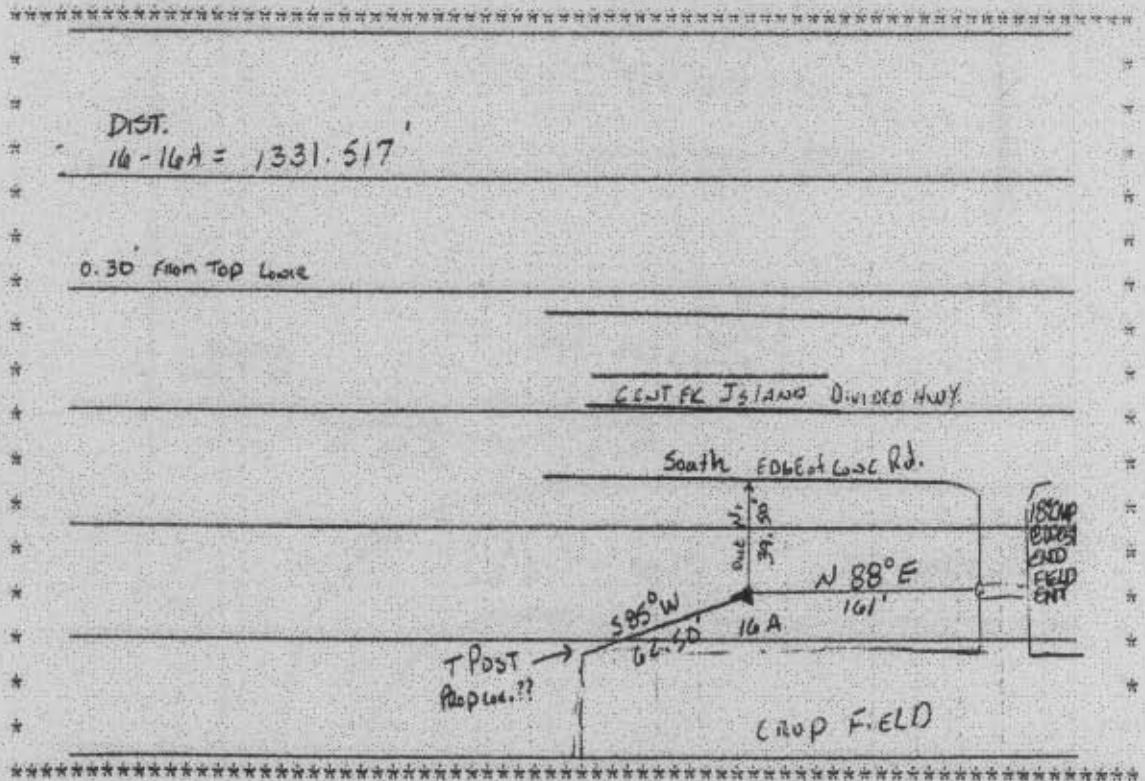 DIST.
16-16A = 1331.517'
0.30' From Top Conc
CENTER ISLAND DIVIDED HWY.
South EDGE of Conc Rd.
Due N.
39.50'
18" CMP
END
FIELD
ENT
N 88° E
161'
S85°W
16A
T POST
Prop cor.??
CROP FIELD